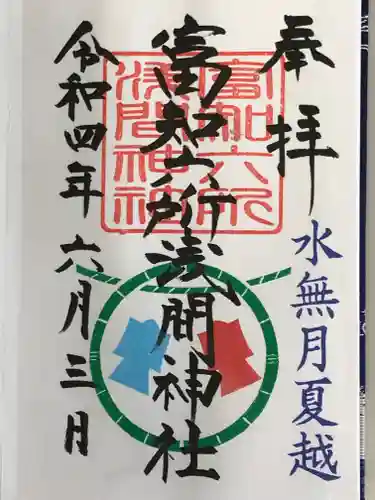 奉拝
水無月夏越
富知六所浅間神社
富知六所
浅間神社
令和四年六月三日